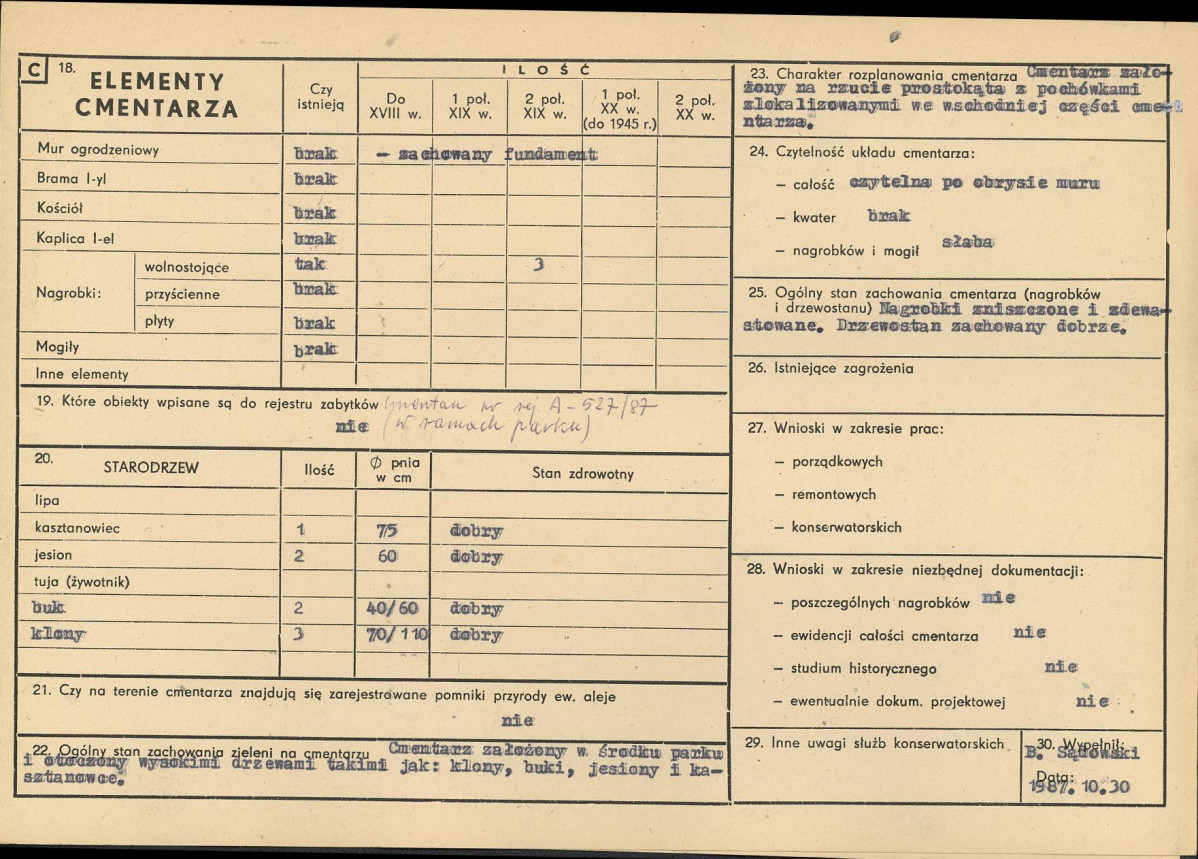 C 18. ELEMENTY CMENTARZA
Czy istnieją
ILOŚĆ
Do XVIII w.
1 poł. XIX w.
2 poł. XIX w.
1 poł. XX w. (do 1945 r.)
2 poł. XX w.
Mur ogrodzeniowy brak – zachowany fundament
Brama I-yl brak
Kościół brak
Kaplica I-el brak
Nagrobki:
wolnostojące tak 3
przyścienne brak
płyty brak
Mogiły brak
Inne elementy
19. Które obiekty wpisane są do rejestru zabytków cmentarz nr rej. A-527/87
nie (w ramach parku)
20. STARODRZEW Ilość Ø pnia w cm Stan zdrowotny
lipa
kasztanowiec 1 75 dobry
jesion 2 60 dobry
tuja (żywotnik)
buk 2 40/60 dobry
klony 3 70/110 dobry
21. Czy na terenie cmentarza znajdują się zarejestrowane pomniki przyrody ew. aleje
nie
22. Ogólny stan zachowania zieleni na cmentarzu Cmentarz założony w środku parku
i otoczony wysokimi drzewami takimi jak: klony, buki, jesiony i ka-
sztanowce.
23. Charakter rozplanowania cmentarza Cmentarz zało-
żony na rzucie prostokąta z pochówkami
zlokalizowanymi we wschodniej części cme-
ntarza.
24. Czytelność układu cmentarza:
– całość czytelna po obrysie muru
– kwater brak
– nagrobków i mogił słaba
25. Ogólny stan zachowania cmentarza (nagrobków
i drzewostanu) Nagrobki zniszczone i zdewa-
stowane. Drzewostan zachowany dobrze.
26. Istniejące zagrożenia
27. Wnioski w zakresie prac:
– porządkowych
– remontowych
– konserwatorskich
28. Wnioski w zakresie niezbędnej dokumentacji:
– poszczególnych nagrobków nie
– ewidencji całości cmentarza nie
– studium historycznego nie
– ewentualnie dokum. projektowej nie
29. Inne uwagi służb konserwatorskich
30. Wypełnił:
B. Sądowski
Data:
1987.10.30